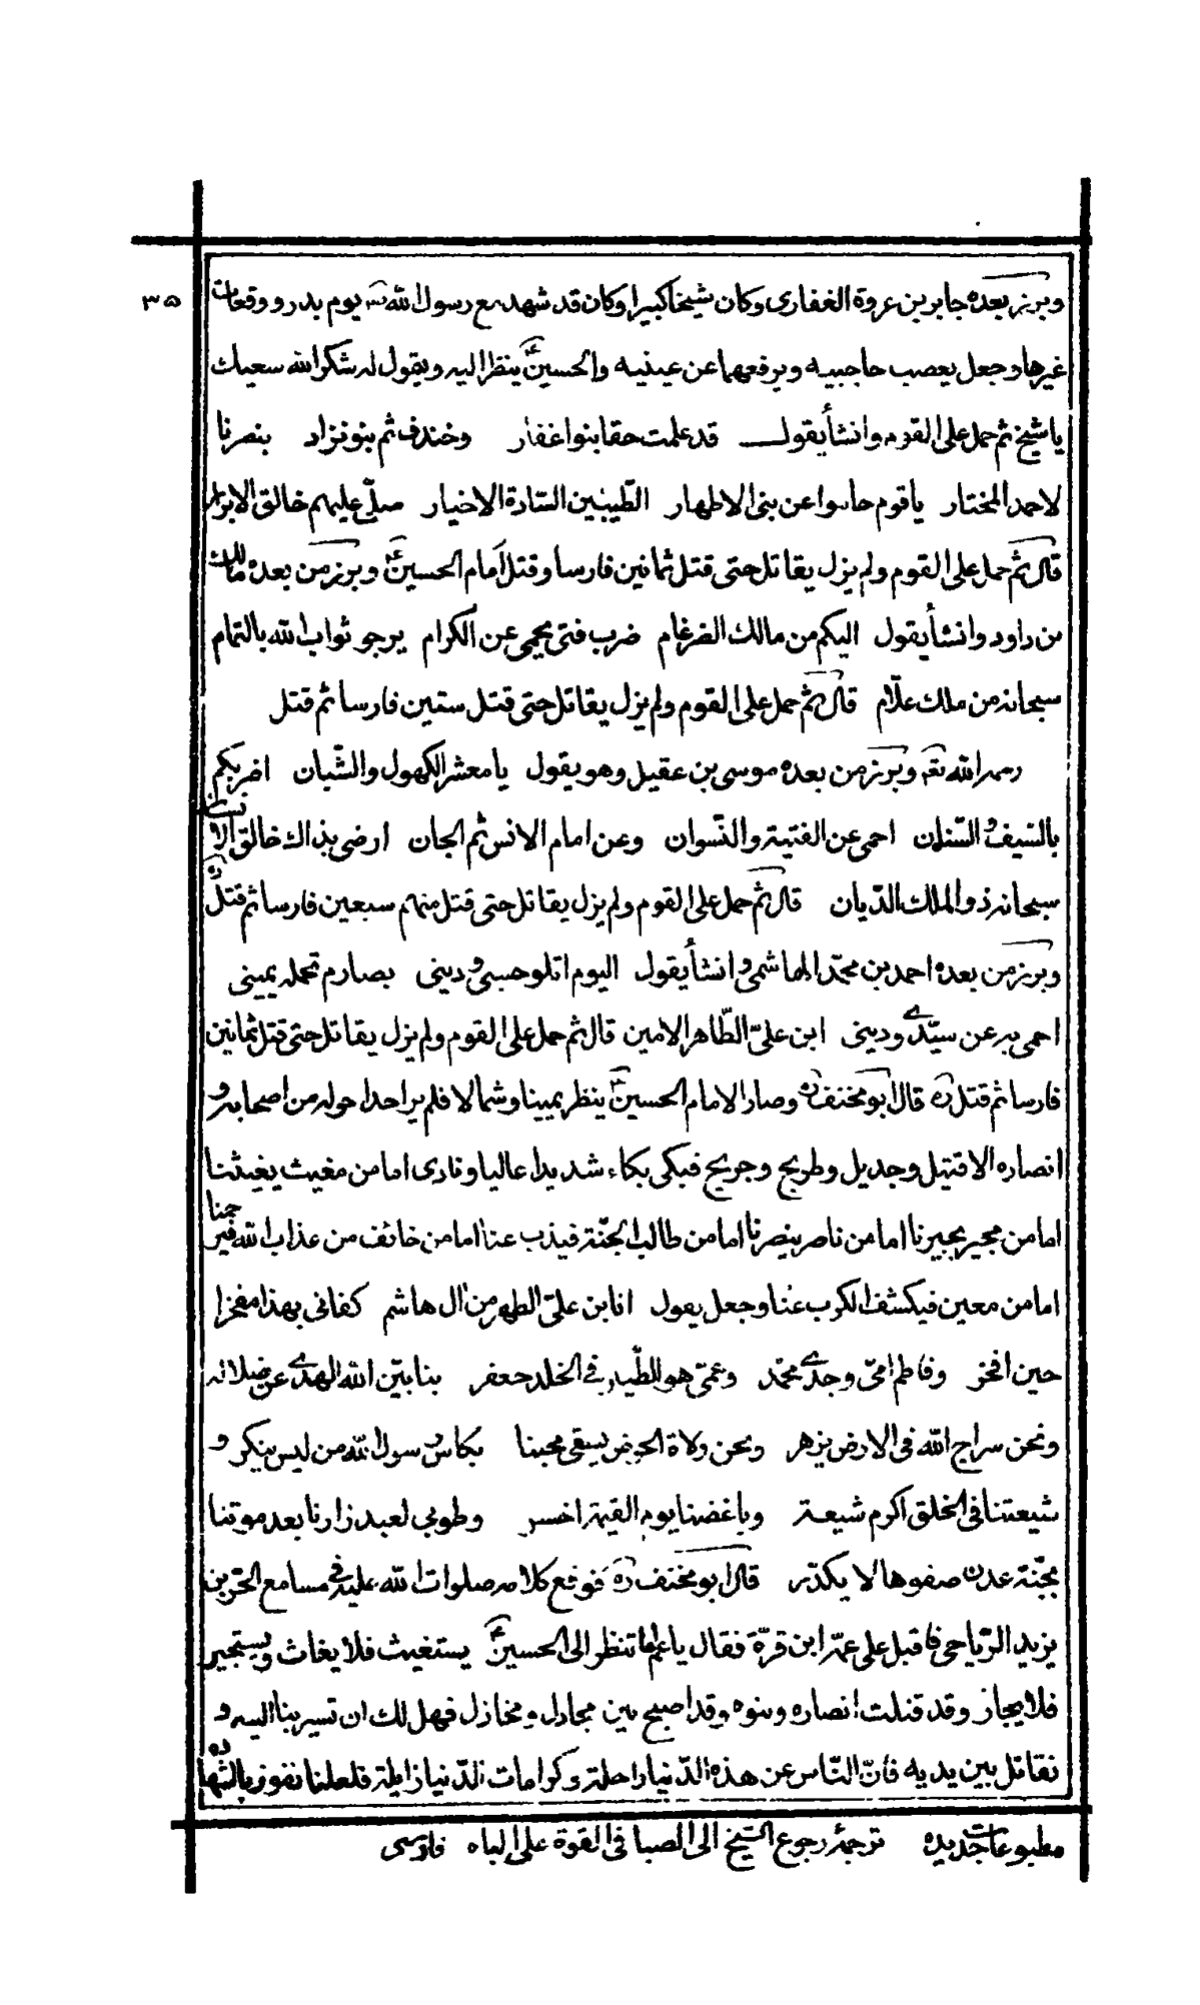 ٣٥
وبرز بعده جابر بن عروة الغفاري وكان شيخا كبيرا وكان قد شهد مع رسول الله يوم بدر ووقعات
غيرها وجعل يعصب حاجبيه ويرفعهما عن عينيه والحسينؑ ينظر اليه ويقول له شكر الله سعيك
يا شيخ ثم حمل على القوم وانشأ يقول قد علمت حقا بنوا غفار وخندف ثم بنو نزاد بنصرنا
لاحمد المختار يا قوم حاموا عن بنى الاطهار الطّيبين السّادة الاخيار صلّى عليهم خالق الابرار
قال ثم حمل على القوم ولم يزل يقاتل حتى قتل ثمانين فارسا وقتل امام الحسينؑ وبرز من بعده مالك
من داود وانشأ يقول اليكم من مالك الضرغام ضرب فتى يحمى عن الكرام يرجو ثواب الله بالتمام
سبحانه من ملك علّام قال ثم حمل على القوم ولم يزل يقاتل حتى قتل ستين فارسا ثم قتل
رحمه الله تعه وبرز من بعده موسى بن عقيل وهو يقول يا معشر الكهول والشّبان اضربكم
بالسّيف والسّنان احمى عن الفتية والنّسوان وعن امام الانس ثم الجان ارضى بذاك خالق الانسان
سبحانه ذو الملك الدّيان قال ثم حمل على القوم ولم يزل يقاتل حتى قتل منهم سبعين فارسا ثم قتل ره
وبرز من بعده احمد بن محمّد الهاشمى وانشأ يقول اليوم اتلو حسبى ودينى بصارم تحمله يمينى
احمى به عن سيّدے ودينى ابن علىّ الطّاهر الامين قال ثم حمل على القوم ولم يزل يقاتل حتى قتل ثمانين
فارسا ثم قتل ره قال ابو مخنف ره وصار الامام الحسينؑ ينظر يمينا وشمالا فلم ير احدا حوله من اصحابه و
انصاره الا قتيل وجديل وطريح وجريح فبكى بكاء شديدا عاليا ونادى اما من مغيث يغيثنا
اما من مجير يجيرنا اما من ناصر ينصرنا اما من طالب الجنّة فيذب عنا اما من خائف من عذاب الله فيرحمنا
اما من معين فيكشف الكرب عنا وجعل يقول انا ابن علىّ الطهر من ال هاشم كفانى بهذا مفخرا
حين افخر وفاطم امّى وجدّے محمّد وعمّى هو الطّيار فى الخلد جعفر بنا بيّن الله الهدے عن ضلاله
ونحن سراج الله فى الارض يزهر ونحن ولاة الحوض يسقى محبنا بكاس رسول الله من ليس ينكر و
شيعتنا فى الخلق اكرم شيعة وباغضنا يوم القيمة اخسر وطوبى لعبد زارنا بعد موتنا
بجنّة عدن صفوها لا يكدّر قال ابو مخنف ره فوقع كلامه صلوات الله عليه فى مسامع الحرّ بن
يزيد الرّياحى فاقبل على عمّه ابن قرّة فقال يا عم اما تنظر الى الحسينؑ يستغيث فلا يغاث ويستجير
فلا يجاز وقد قتلت انصاره وبنوه وقد اصبح بين مجادل ومخازل فهل لك ان تسير بنا اليه و
نقاتل بين يديه فانّ النّاس عن هذه الدّنيا راحلة وكرامات الدّنيا زايلة فلعلنا نفوز بالشّهاده
مطبوعات جديده ترجمۂ رجوع الشيخ الى الصبا فى القوة على الباه فارسى